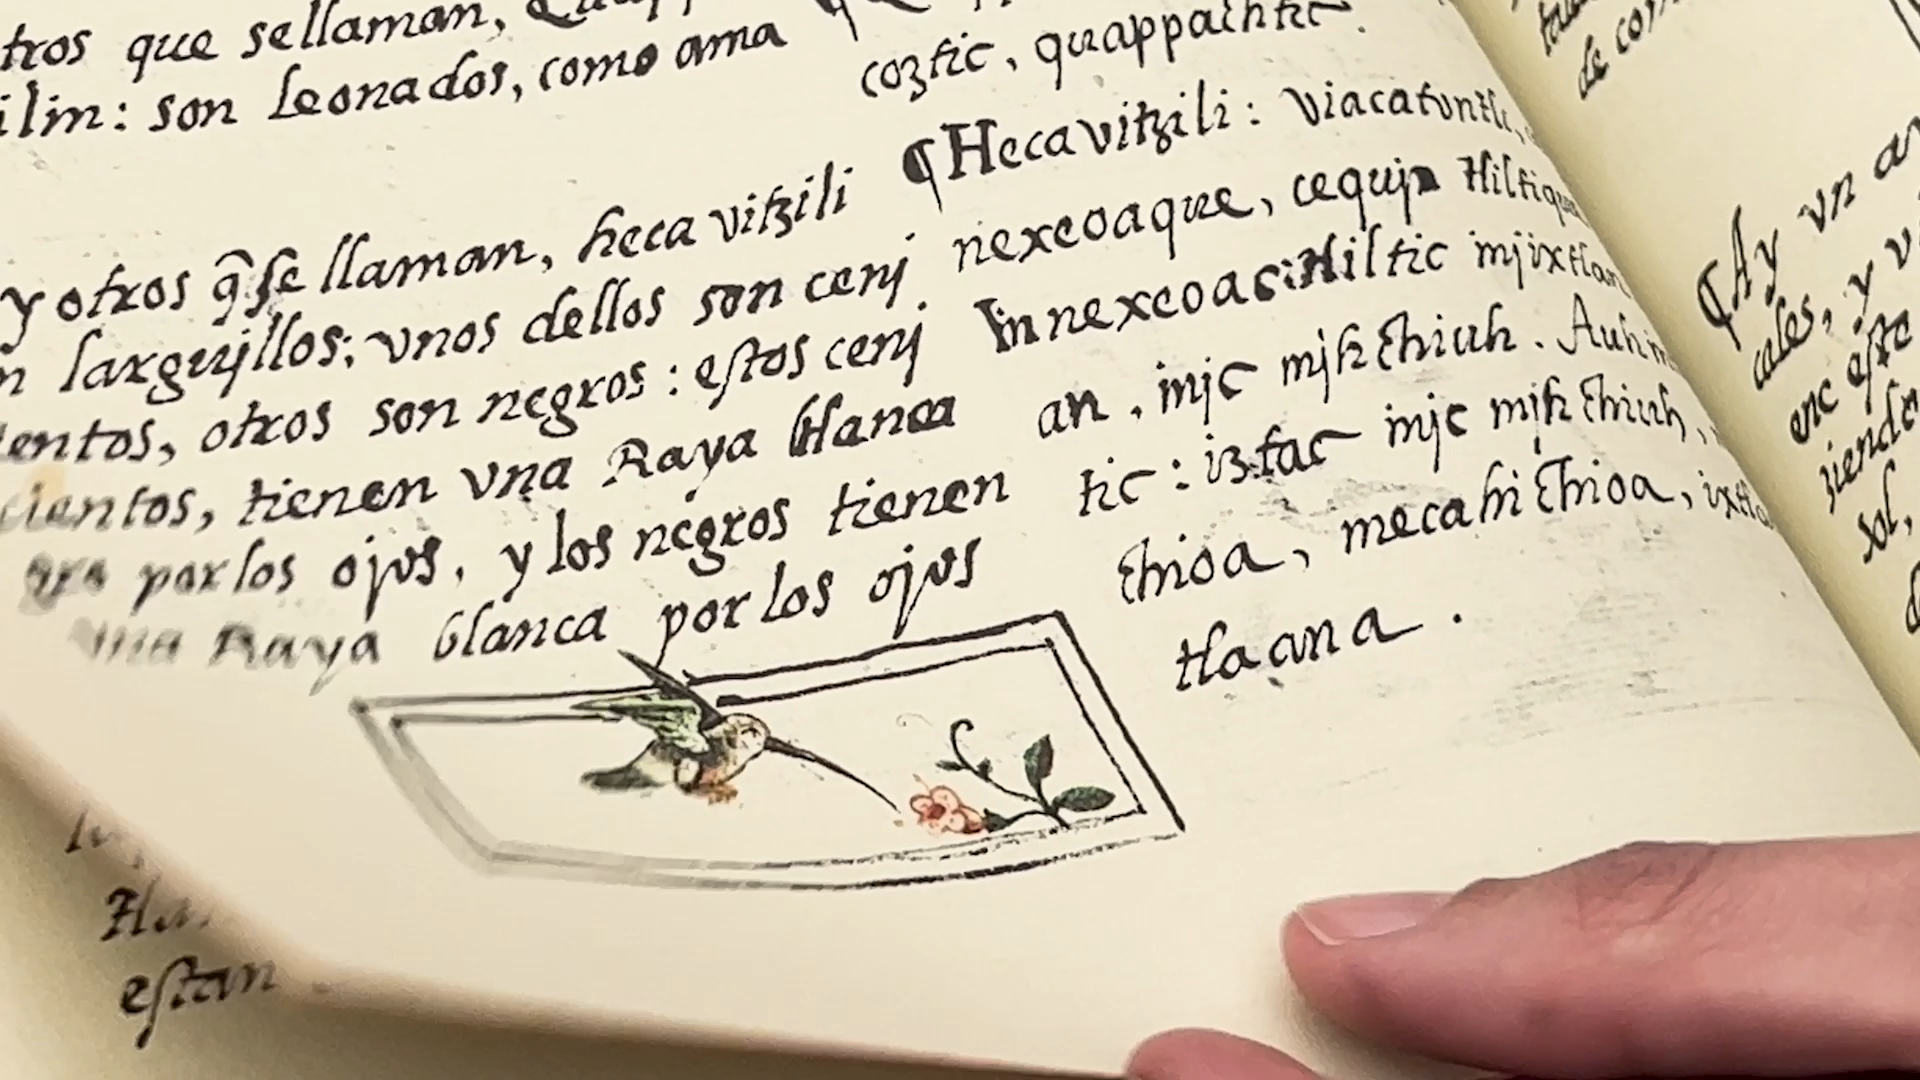 tros que sellaman,
ilin: son leonados, como ama
y otros q̃ se llaman, heca vitzili
n larguillos: vnos dellos son ceni
ientos, otros son negros: estos ceni
cientos, tienen vna Raya blanca
por los ojos, y los negros tienen
vna Raya blanca por los ojos
coztic, quappachtic.
¶Hecavitzili: viacatontli,
nexeoaque, cequin tliltique
In nexeoac: tliltic injc mixtlan
an, injc mihchiuh. Auh in
tic: iztac injc mihchiuh,
chioa, mecahichioa, ixtla
tlaana.
estan
¶Ay vn
cales, y
enc este
ziendo
sol,